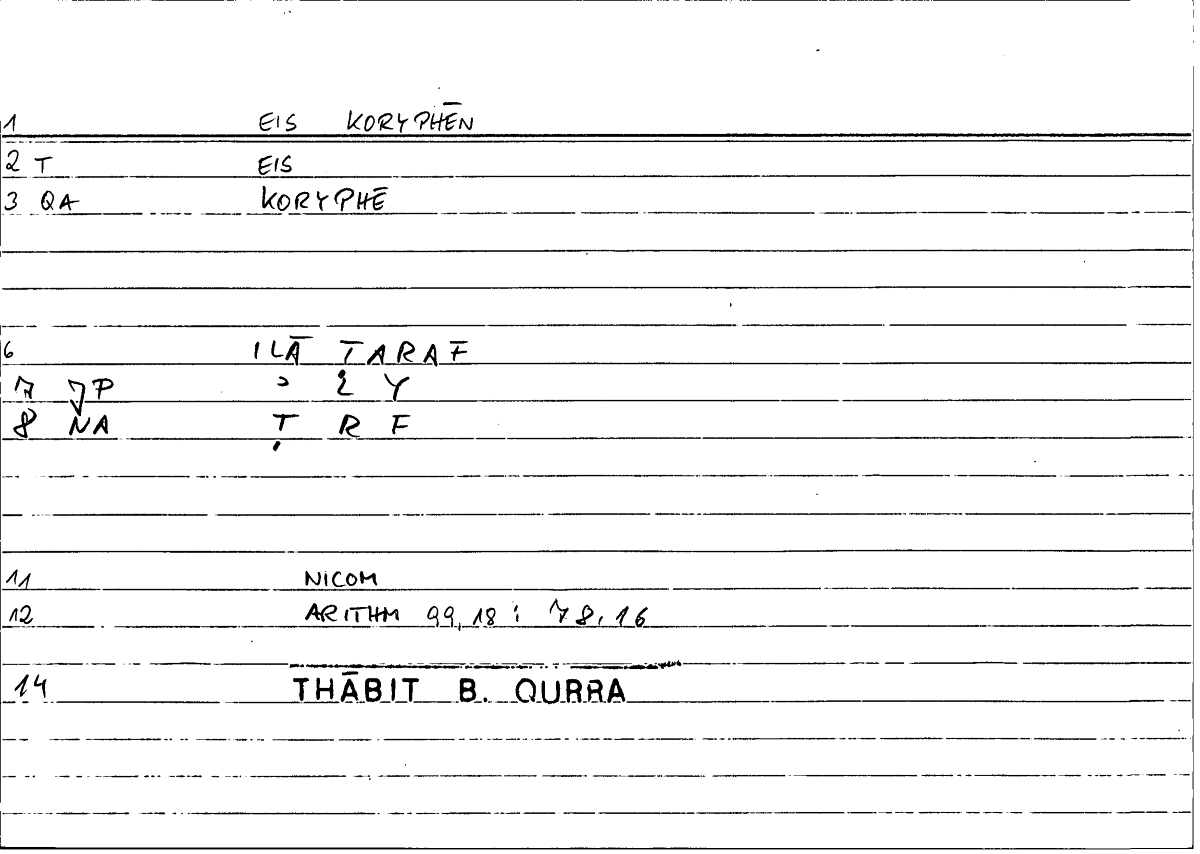 1 EIS KORYPHĒN
2 T EIS
3 QA KORYPHĒ
6 ILĀ ṬARAF
7 JP ʾ L Y
8 NA Ṭ R F
11 NICOM
12 ARITHM 99,18 : 78,16
14 THĀBIT B. QURRA